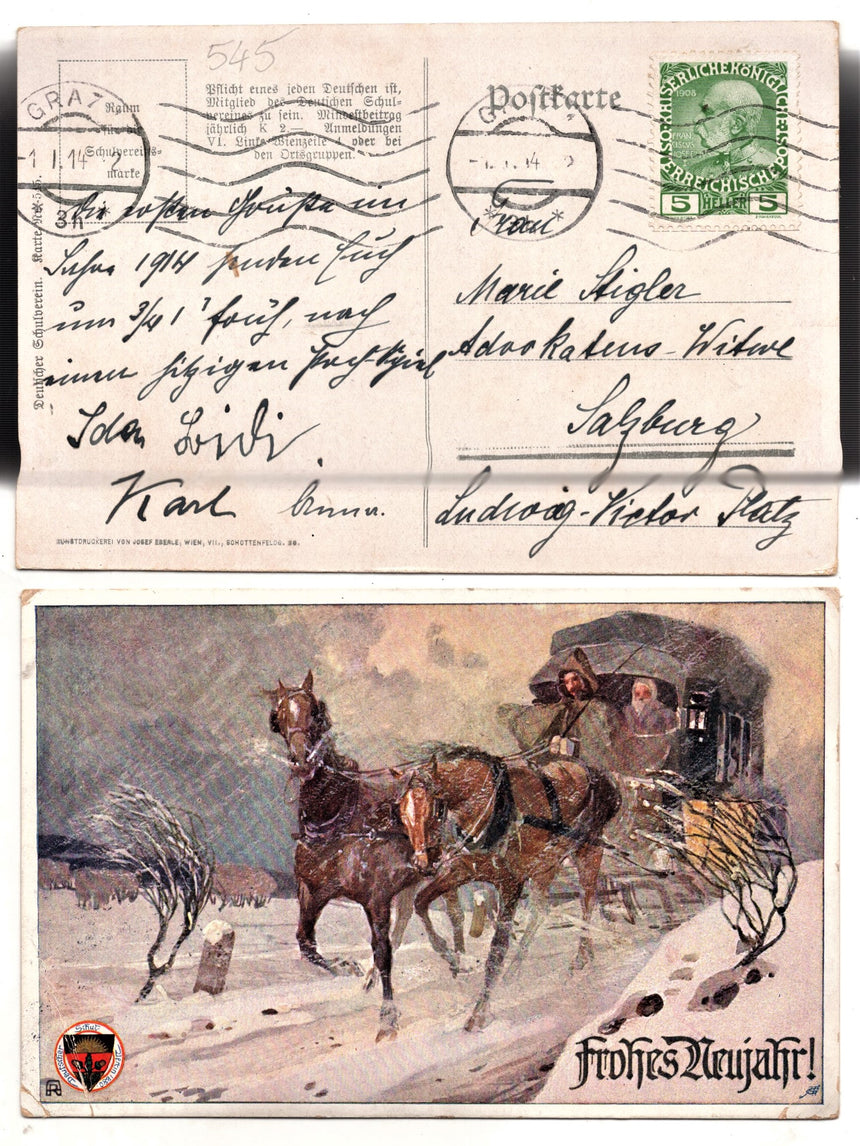 545
Pflicht eines jeden Deutschen ist,
Mitglied des Deutschen Schul-
vereines zu sein. Mindestbeitrag
jährlich K 2.— Anmeldungen
VI. Linke Wienzeile 4 oder bei
den Ortsgruppen.
Raum
für die
Schulvereins-
marke
GRAZ
-1.I.14 2
3h
Deutscher Schulverein. Karte Nr. 545.
Die ersten Grüße im
Jahre 1914 senden Euch
um 3/4 1 früh, nach
einem hitzigen Poch-Spiel
Ida
Karl
KUNSTDRUCKEREI VON JOSEF EBERLE, WIEN, VII., SCHOTTENFELDG. 38.
Postkarte
-1.I.14
KAISERLICHE KÖNIGLICHE
ÖSTERREICHISCHE
1908
FRANCISCUS
JOSEPH I
5 HELLER 5
Frau
Marie Stigler
Advokatens-Witwe
Salzburg
Ludwig-Victor Platz
Deutscher Schulverein 1880
Frohes Neujahr!